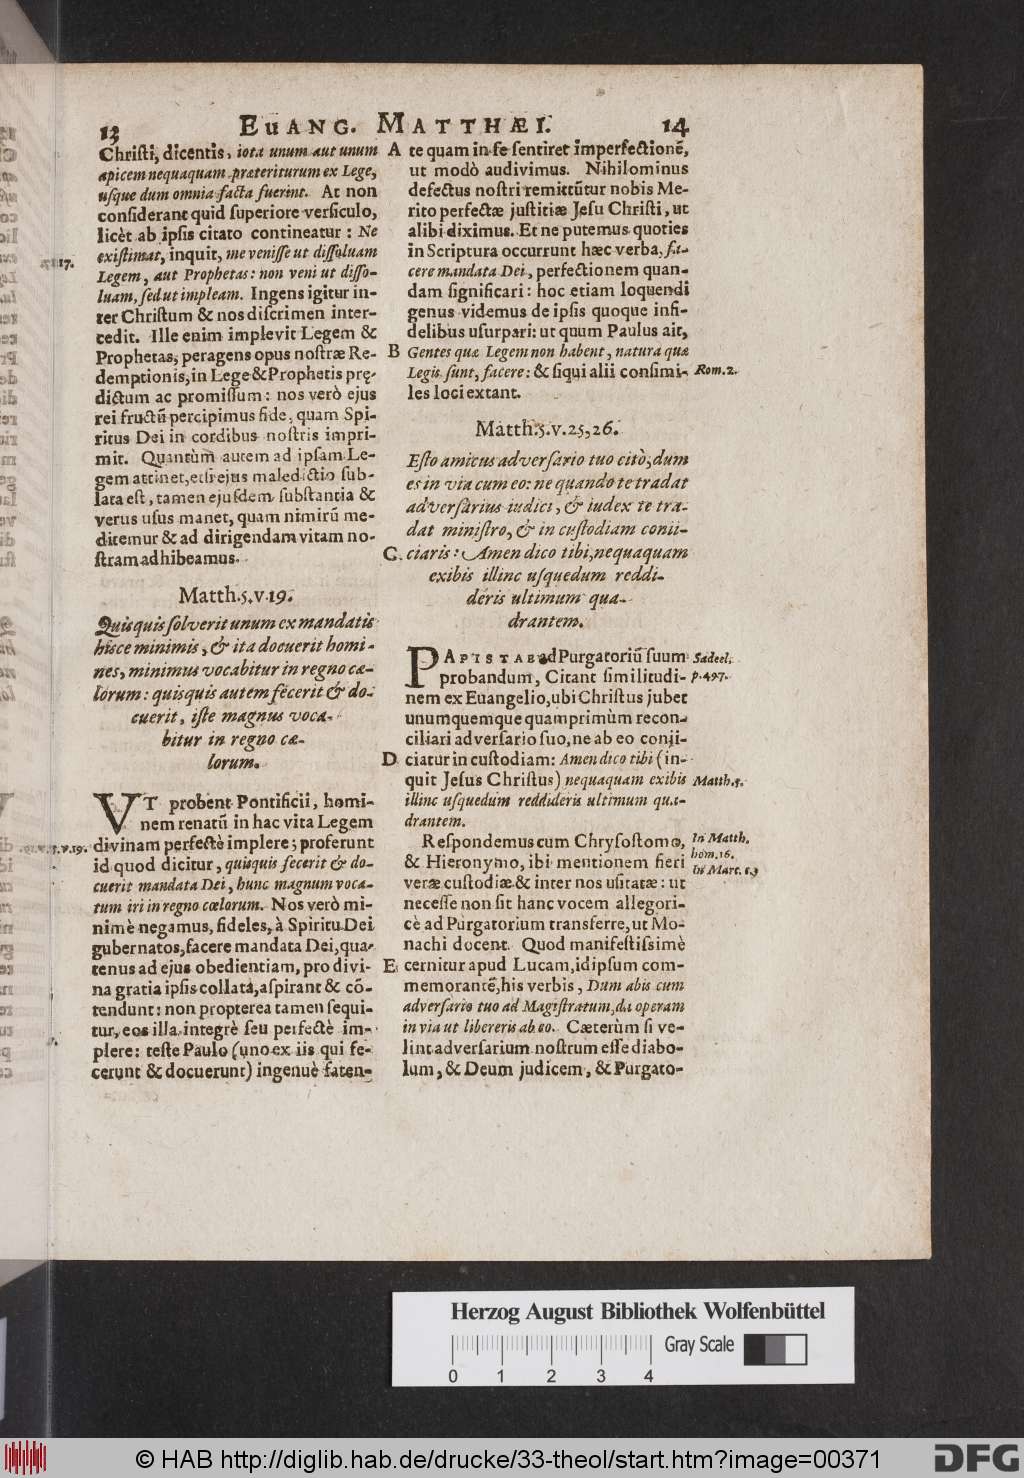 13 EuANG. MATTHÆI. 14
Chriſti, dicentis, iota unum aut unum
apicem nequaquam præteriturum ex Lege,
uſque dum omnia facta fuerint. At non
conſiderant quid ſuperiore verſiculo,
licèt ab ipſis citato contineatur : Ne
exiſtimat, inquit, me veniſſe ut diſſoluam
Legem, aut Prophetas: non veni ut diſſo-
luam, ſed ut impleam. Ingens igitur in-
ter Chriſtum & nos diſcrimen inter-
cedit. Ille enim implevit Legem &
Prophetas, peragens opus noſtræ Re-
demptionis, in Lege & Prophetis prę-
dictum ac promiſſum: nos verò ejus
rei fructũ percipimus fide, quam Spi-
ritus Dei in cordibus noſtris impri-
mit. Quantùm autem ad ipſam Le-
gem attinet, etſi ejus maledictio ſub-
lata eſt, tamen ejuſdem ſubſtantia &
verus uſus manet, quam nimirũ me-
ditemur & ad dirigendam vitam no-
ſtram adhibeamus.
Matth.5.v.19.
Quisquis ſolverit unum ex mandatis
hiſce minimis, & ita docuerit homi-
nes, minimus vocabitur in regno cæ-
lorum: quisquis autem fecerit & do-
cuerit, iſte magnus voca-
bitur in regno cæ-
lorum.
VT probent Pontificii, homi-
nem renatũ in hac vita Legem
divinam perfectè implere; proferunt
v.19.
id quod dicitur, quisquis fecerit & do-
cuerit mandata Dei, hunc magnum voca-
tum iri in regno cælorum. Nos verò mi-
nimè negamus, fideles, à Spiritu Dei
gubernatos, facere mandata Dei, qua-
tenus ad ejus obedientiam, pro divi-
na gratia ipſis collatâ, aſpirant & cõ-
tendunt: non propterea tamen ſequi-
tur, eos illa integrè ſeu perfectè im-
plere: teſte Paulo (uno ex iis qui fe-
cerunt & docuerunt) ingenuè faten-
A te quam in ſe ſentiret imperfectionẽ,
ut modò audivimus. Nihilominus
defectus noſtri remittũtur nobis Me-
rito perfectæ juſtitiæ Jeſu Chriſti, ut
alibi diximus. Et ne putemus quoties
in Scriptura occurrunt hæc verba, fa-
cere mandata Dei, perfectionem quan-
dam ſignificari: hoc etiam loquendi
genus videmus de ipſis quoque infi-
delibus uſurpari: ut quum Paulus ait,
B Gentes quæ Legem non habent, natura quæ
Legis ſunt, facere: & ſiqui alii conſimi- Rom.2.
les loci extant.
Matth.5.v.25,26.
Eſto amicus adverſario tuo citò, dum
es in via cum eo: ne quando te tradat
adverſarius iudici, & iudex te tra-
dat miniſtro, & in cuſtodiam conii-
C ciaris: Amen dico tibi, nequaquam
exibis illinc uſquedum reddi-
deris ultimum qua-
drantem.
PAPISTAE ad Purgatoriũ ſuum Sadeel,
probandum, Citant ſimilitudi- p.497.
nem ex Euangelio, ubi Chriſtus jubet
unumquemque quamprimùm recon-
ciliari adverſario ſuo, ne ab eo conji-
D ciatur in cuſtodiam: Amen dico tibi (in-
quit Jeſus Chriſtus) nequaquam exibis Matth.5.
illinc uſquedum reddideris ultimum qua-
drantem.
Reſpondemus cum Chryſoſtomo, In Matth.
hom.16.
& Hieronymo, ibi mentionem fieri In Marc.
veræ cuſtodiæ & inter nos uſitatæ: ut
neceſſe non ſit hanc vocem allegori-
cè ad Purgatorium transferre, ut Mo-
nachi docent. Quod manifeſtiſsimè
E cernitur apud Lucam, idipſum com-
memorantẽ, his verbis, Dum abis cum
adverſario tuo ad Magiſtratum, da operam
in via ut libereris ab eo. Cæterùm ſi ve-
lint adverſarium noſtrum eſſe diabo-
lum, & Deum judicem, & Purgato-
Herzog August Bibliothek Wolfenbüttel
Gray Scale
0 1 2 3 4
© HAB http://diglib.hab.de/drucke/33-theol/start.htm?image=00371
DFG